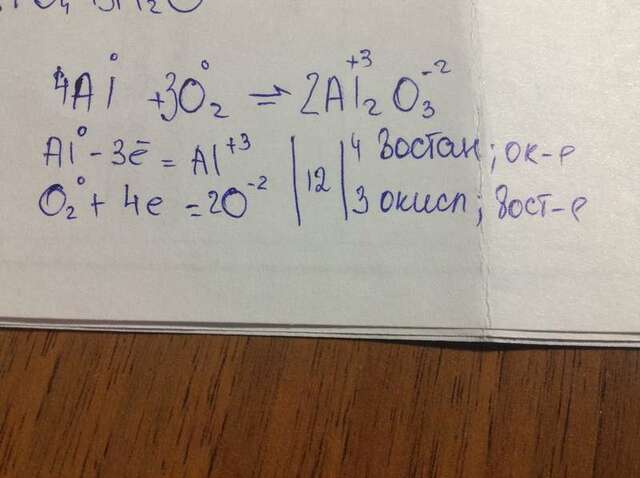 4Al⁰ + 3O₂⁰ = 2Al₂⁺³O₃⁻²
Al⁰ - 3ē = Al⁺³ | 12 | 4 Востан; ок-р
O₂⁰ + 4e = 2O⁻² | 3 окисл; Вост-р